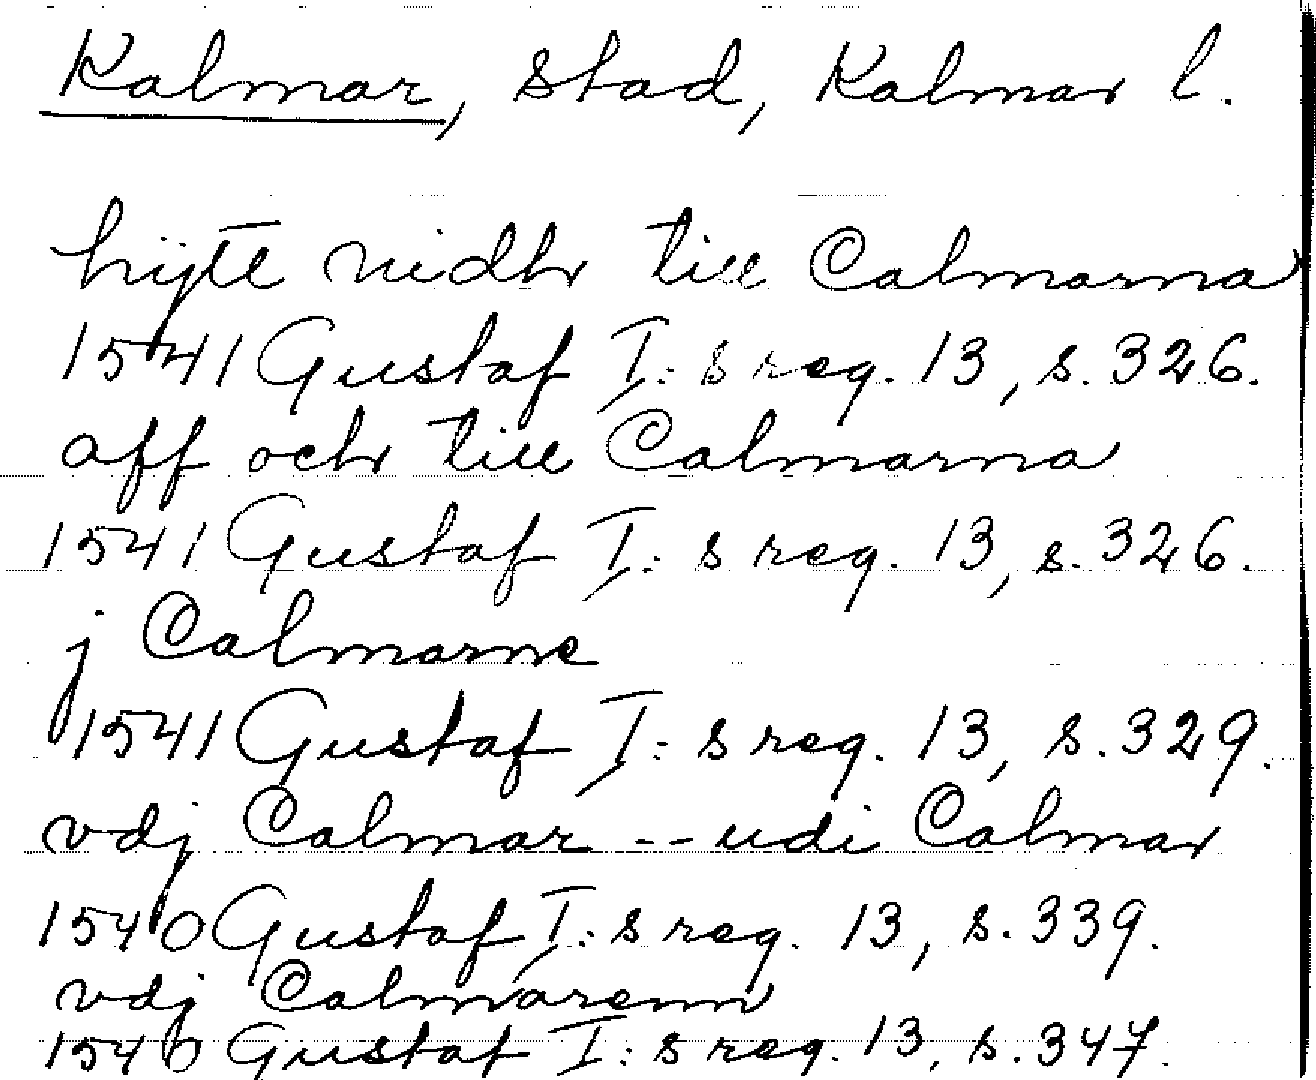 Kalmar, stad, Kalmar l.
hijtt nidhr till Calmarna
1541 Gustaf I:s reg. 13, s. 326.
aff och till Calmarna
1541 Gustaf I:s reg. 13, s. 326.
j Calmarne
1541 Gustaf I:s reg. 13, s. 329.
vdj Calmar -- udi Calmar
1540 Gustaf I:s reg. 13, s. 339.
vdj Calmarenn
1540 Gustaf I:s reg. 13, s. 347.